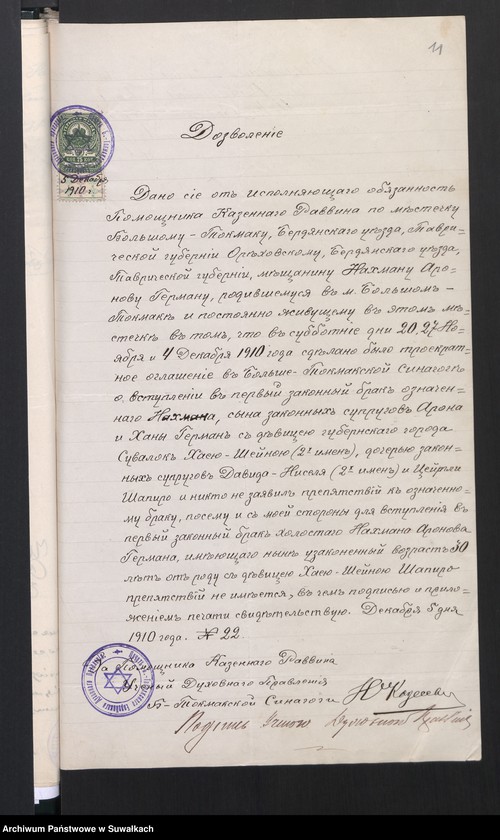 11
Дозволенiе
5 Декабря
1910 г.
Дано сiе отъ исполняющаго обязанность
Помощника Казеннаго Раввина по мѣстечку
Большому-Токмаку, Бердянскаго уѣзда, Таври-
ческой губернiи Орѣховскому, Бердянскаго уѣзда,
Таврической губернiи, мѣщанину Нахману Аро-
нову Герману, родившемуся въ м. Большомъ-
Токмакѣ и постоянно живущему въ этомъ мѣ-
стечкѣ въ томъ, что въ субботнiе дни 20, 27 Но-
ября и 4 Декабря 1910 года сдѣлано было троекрат-
ное оглашенiе въ Больше-Токмакской Синагогѣ
о вступленiи въ первый законный бракъ означен-
наго Нахмана, сына законныхъ супруговъ Арона
и Ханы Германъ съ дѣвицею губернскаго города
Сувалокъ Хаею-Шейною (2ъ именъ), дочерью закон-
ныхъ супруговъ Давида-Ниселя (2ъ именъ) и Цейтли
Шапиро и никто не заявилъ препятствiй къ означенно-
му браку, посему и съ моей стороны для вступленiя въ
первый законный бракъ холостаго Нахмана Аронова
Германа, имѣющаго нынѣ узаконенный возрастъ 30
лѣтъ отъ роду съ дѣвицею Хаею-Шейною Шапиро
препятствiй не имѣется, въ чемъ подписью и прило-
женiемъ печати свидѣтельствую. Декабря 5 дня
1910 года. № 22
За Помощника Казеннаго Раввина
Ученый Духовнаго Правленiя
Б-Токмакской Синагоги
Подпись
Archiwum Państwowe w Suwałkach